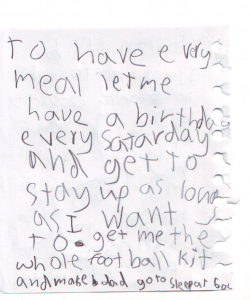 To have every
meal let me
have a birthday
every Satarday
and get to
stay up as long
as I want
to. get me the
whole foot ball kit
and make dad go to sleep at 6oc